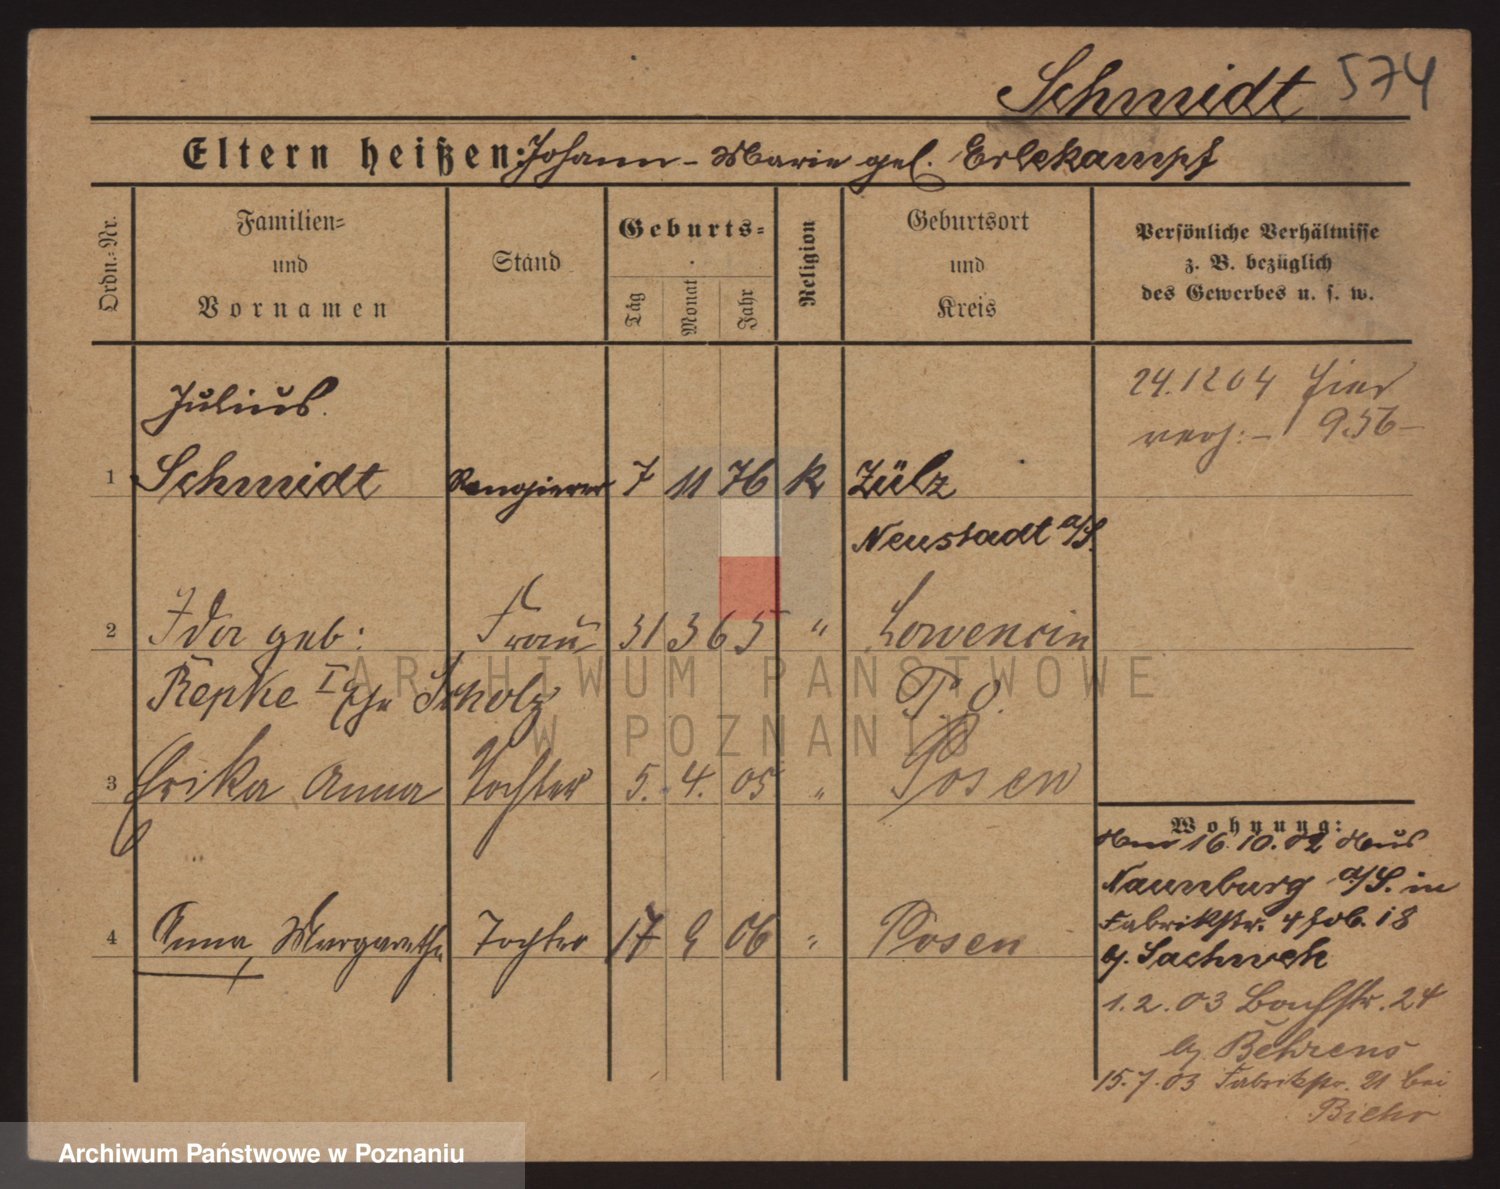 Schmidt 574
Eltern heißen: Johann - Marie geb. Erlekampf
Ordn.-Nr.
Familien-
und
Vornamen
Stand
Geburts-
Tag
Monat
Jahr
Religion
Geburtsort
und
Kreis
Persönliche Verhältnisse
z. B. bezüglich
des Gewerbes u. s. w.
24.12 04 hier
verh: - 9.56 -
Julius
1 Schmidt Rangierer 7 11 76 K Zülz
Neustadt a/S.
2 Ida geb: Frau 31 3 65 " Lowencin
Repke I Scholz P. O.
3 Erika Anna Tochter 5. 4. 05 " Posen
4 Anna, Margarethe Tochter 17 9 06 " Posen
Wohnung:
16.10.02 aus
Naumburg a/S. in
Fabrikstr. 4 18
b. Sachweh
1.2.03 Bachstr. 24
b. Behrens
15.7.03 Fabrikstr. 21 bei
Biehr
ARCHIWUM PAŃSTWOWE
W POZNANIU
Archiwum Państwowe w Poznaniu